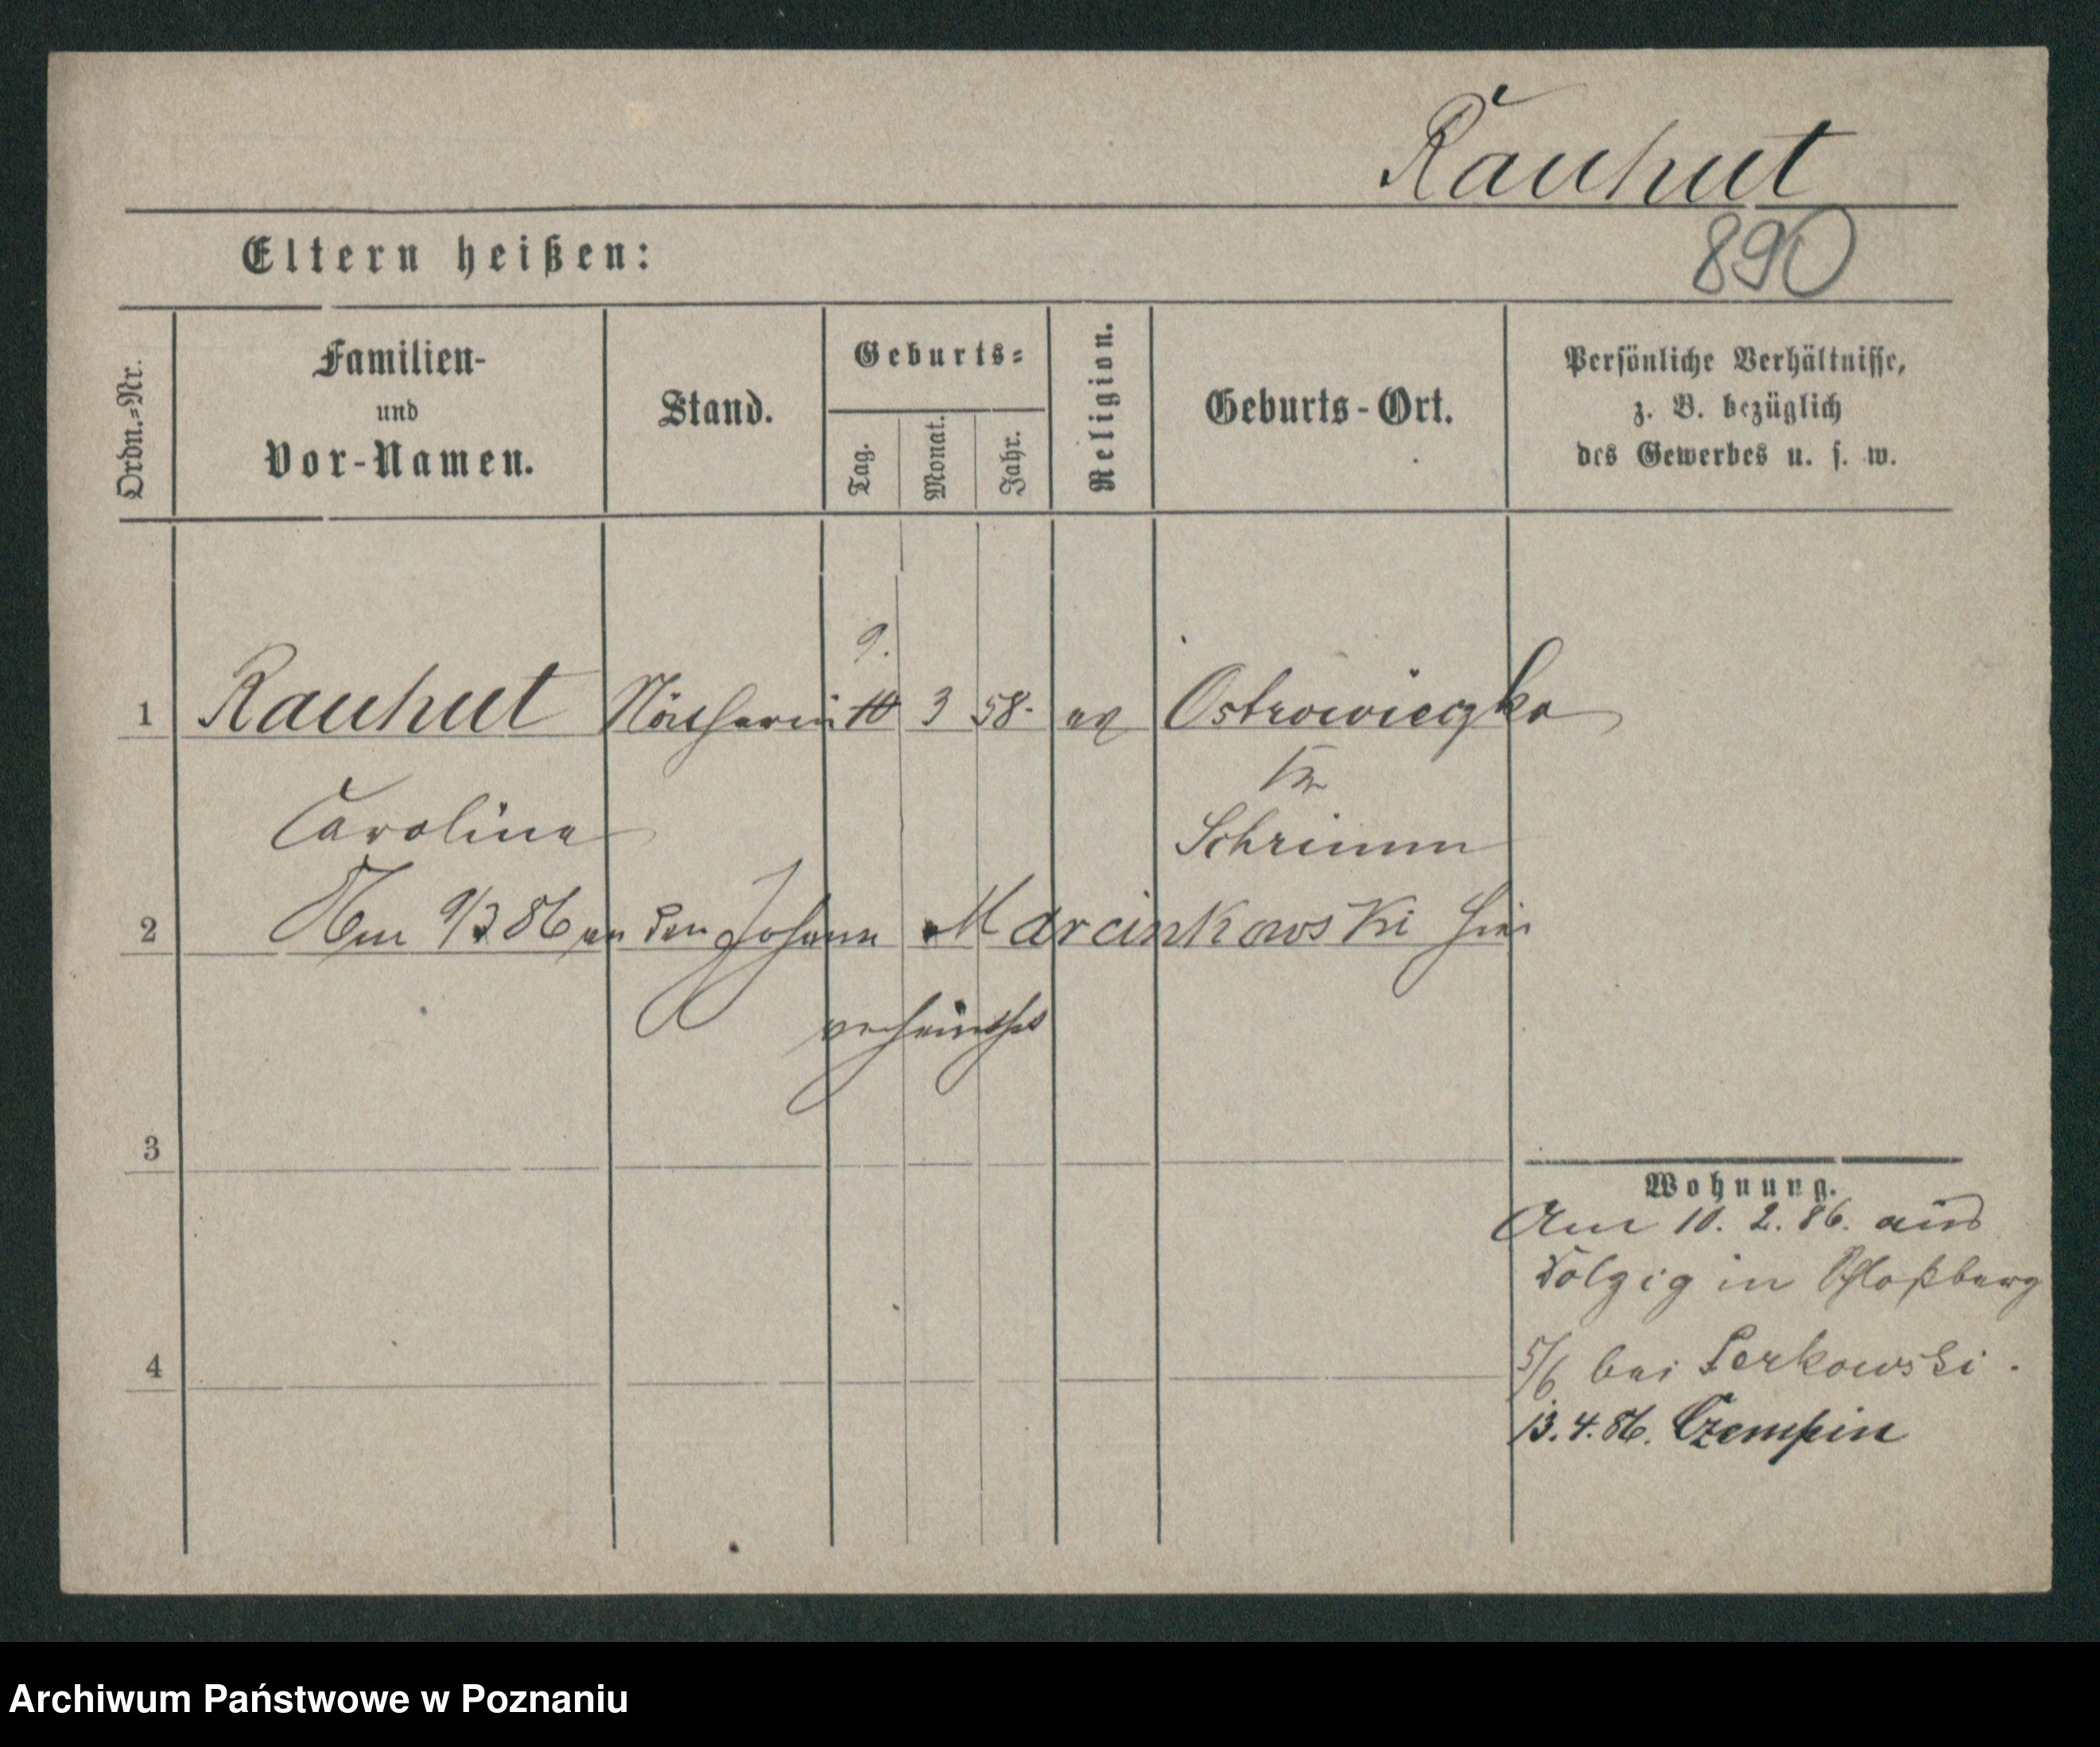 Rauhut
Eltern heißen:
890
Ordn.=Nr.
Familien-
und
Vor-Namen.
Stand.
Geburts=
Tag.
Monat.
Jahr.
Religion.
Geburts-Ort.
Persönliche Verhältnisse,
z. B. bezüglich
des Gewerbes u. s. w.
9.
1 Rauhut Nätherin 10 3 58. ev Ostrowieczko
Kr
Caroline Schrimm
2 Am 9/3 86 an den Johann Marcinkowski hier
verheirathet
3
Wohnung.
Am 10. 2. 86. aus
Dolzig in Schloßberg
5/6 bei Serkowski.
4
13. 4. 86. Czempin
Archiwum Państwowe w Poznaniu